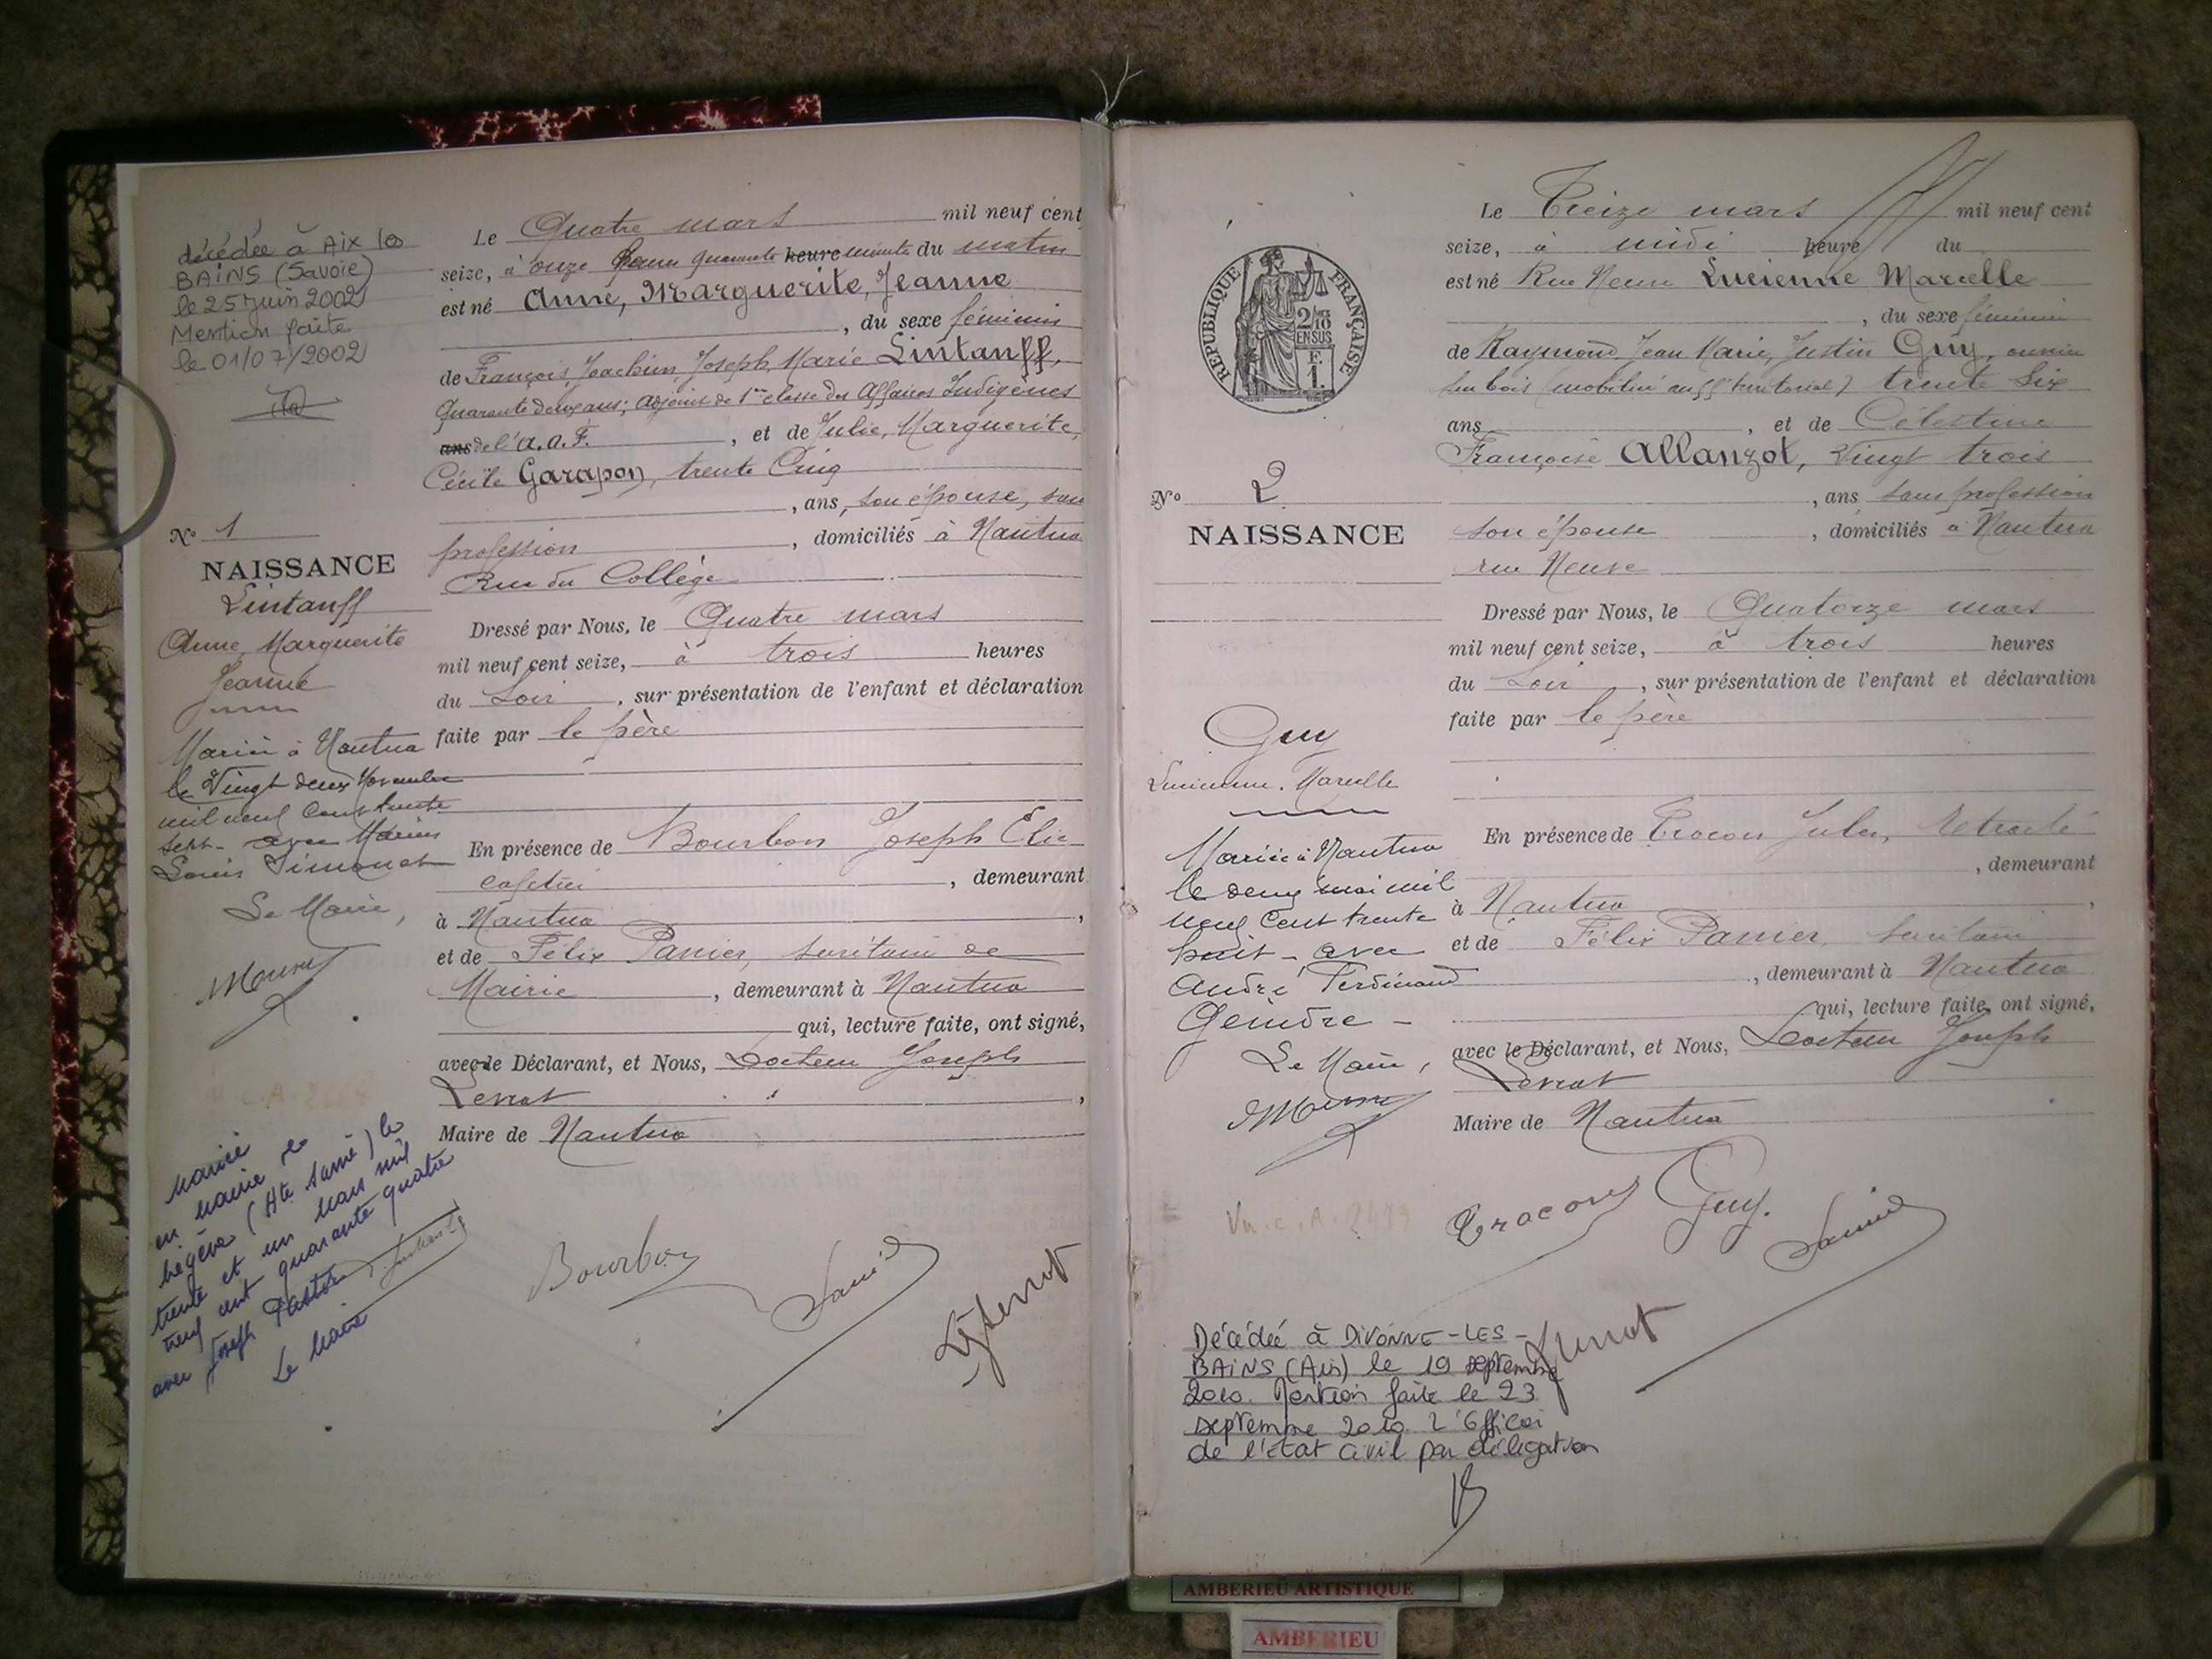 décédée à Aix les
BAiNS (Savoie)
le 25 Juin 2002
Mention faite
le 01/07/2002
N° 1
NAISSANCE
Lintanff
Anne, Marguerite
Jeanne
Mariée à Nantua
le Vingt deux Novembre
mil neuf Cent trente
sept - avec Marius
Louis Simonet
Le Maire,
Mariée
en Mairie de
Mégève (Hte Savoie) le
trente et un Mars mil
neuf cent quarante quatre
avec Joseph Pastor
Le Maire
Le Quatre mars mil neuf cent
seize, à onze heures quarante heure minutes du matin
est né Anne, Marguerite, Jeanne
, du sexe féminin
de François, Joachim, Joseph Marie Lintanff,
Quarante deux ans; adjoint de 1ère classe des Affaires Indigènes
ans de l'A.O.F. , et de Julie, Marguerite,
Cécile Garapon, trente Cinq
, ans, son épouse, sans
profession , domiciliés à Nantua
Rue du Collège
Dressé par Nous, le Quatre mars
mil neuf cent seize, à trois heures
du Soir , sur présentation de l'enfant et déclaration
faite par le père
En présence de Bourbon Joseph Elie
cafetier , demeurant
à Nantua ,
et de Félix Panier, secrétaire de
Mairie , demeurant à Nantua
qui, lecture faite, ont signé,
avec le Déclarant, et Nous, Docteur Joseph
Levrat ,
Maire de Nantua
Bourbon
RÉPUBLIQUE FRANÇAISE
2/10 EN SUS
F.
1.
N° 2
NAISSANCE
Guy
Lucienne. Marcelle
Mariée à Nantua
le deux mai mil
neuf Cent trente
huit - avec
André Ferdinand
Gendre -
Le Maire,
Vu. c. A. 2479
Le Treize mars mil neuf cent
seize, à midi heure du
est né Rue Neuve Lucienne Marcelle
, du sexe féminin
de Raymond, Jean Marie, Justin Guy, ouvrier
sur bois (mobilisé territorial) trente Six
ans , et de Célestine
Françoise Allanzot, Vingt trois
, ans sans profession
son épouse , domiciliés à Nantua
rue Neuve
Dressé par Nous, le Quatorze mars
mil neuf cent seize, à trois heures
du Soir , sur présentation de l'enfant et déclaration
faite par le père
En présence de Tracon Jules, Retraité
, demeurant
à Nantua ,
et de Félix Panier, secrétaire
, demeurant à Nantua
qui, lecture faite, ont signé,
avec le Déclarant, et Nous, Docteur Joseph
Levrat
Maire de Nantua
Guy.
Décédée à DIVONNE-LES-
BAINS (Ain) le 19 septembre
2010. Mention faite le 23
septembre 2010. L'Officier
de l'état civil par délégation
AMBERIEU ARTISTIQUE
AMBERIEU